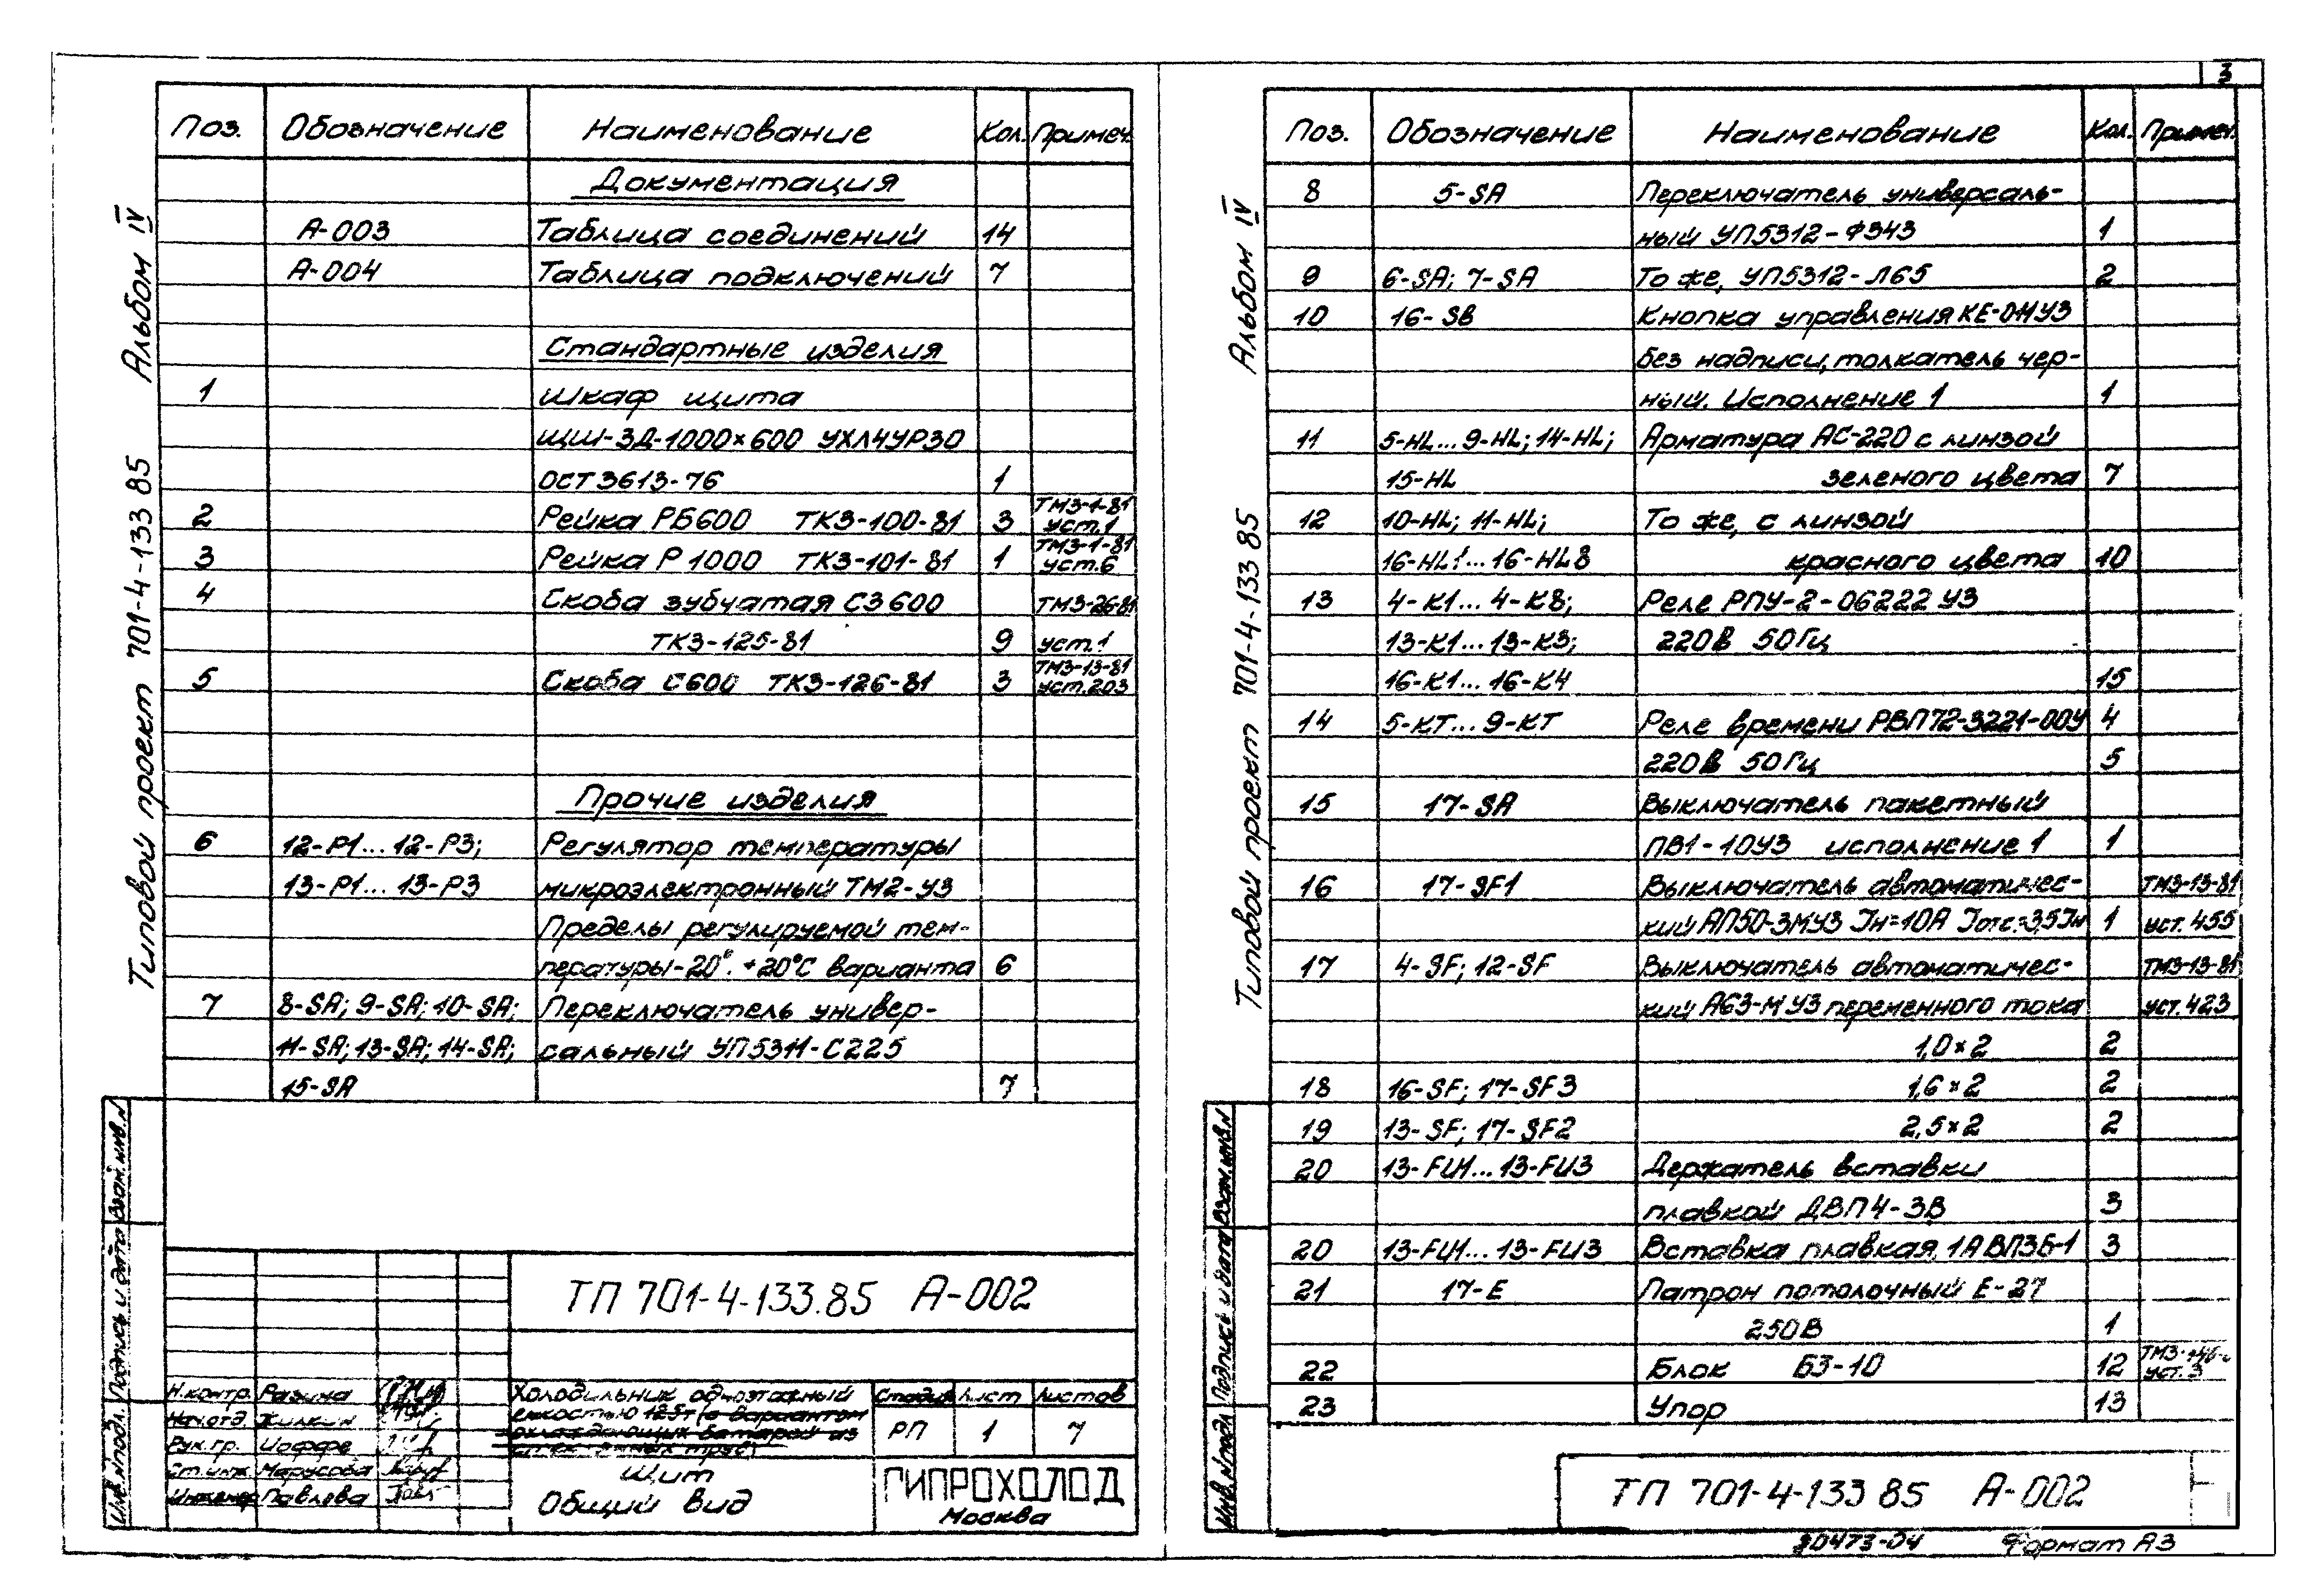 3
Поз. Обозначение Наименование Кол. Примеч.
Документация
А-003 Таблица соединений 14
А-004 Таблица подключений 7
Стандартные изделия
1 Шкаф щита
ЩШ-ЗД-1000×600 УХЛ4УР30
ОСТ 3613-76 1
2 Рейка РБ600 ТК3-100-81 3 ТМ3-1-81 уст.1
3 Рейка Р1000 ТК3-101-81 1 ТМ3-1-81 уст.6
4 Скоба зубчатая СЗ600 ТМ3-26-81
ТК3-125-81 9 уст.1
5 Скоба С600 ТК3-126-81 3 ТМ3-13-81 уст.203
Прочие изделия
6 12-Р1...12-Р3; Регулятор температуры
13-Р1...13-Р3 микроэлектронный ТМ2-У3
Пределы регулируемой тем-
пературы-20°. +20°С варианта 6
7 8-SA; 9-SA; 10-SA; Переключатель универ-
11-SA; 13-SA; 14-SA; сальный УП5311-С225
15-SA 7
Альбом IV
Типовой проект 701-4-133 85
Инв. N подл. Подпись и дата Взам. инв. N
ТП 701-4-133.85 А-002
Н.контр. Разина
Нач.отд. Жилкин
Рук.гр. Иоффе
Ст.инж. Марусова
Инженер Павлова
Холодильник одноэтажный
емкостью 125т (с вариантом
охлаждающих батарей из
труб)
Щит
Общий вид
Стадия Лист Листов
РП 1 7
ГИПРОХОЛОД
Москва
Поз. Обозначение Наименование Кол. Примеч.
8 5-SA Переключатель универсаль-
ный УП5312-Ф343 1
9 6-SA; 7-SA То же, УП5312-Л65 2
10 16-SB Кнопка управления КЕ-011У3
без надписи, толкатель чер-
ный. Исполнение 1 1
11 5-HL...9-HL; 14-HL; Арматура АС-220 с линзой
15-HL зеленого цвета 7
12 10-HL; 11-HL; То же, с линзой
16-HL1...16-HL8 красного цвета 10
13 4-К1...4-К8; Реле РПУ-2-06222 У3
13-К1...13-К3; 220В 50Гц
16-К1...16-К4 15
14 5-КТ...9-КТ Реле времени РВП72-3221-00У 4
220В 50Гц 5
15 17-SA Выключатель пакетный
ПВ1-10У3 исполнение 1 1
16 17-SF1 Выключатель автоматичес- ТМ3-13-81
кий АП50-3МУ3 Iн=10А Iотс.=3,5Iн 1 уст. 455
17 4-SF; 12-SF Выключатель автоматичес- ТМ3-13-81
кий А63-М У3 переменного тока уст. 423
1,0×2 2
18 16-SF; 17-SF3 1,6×2 2
19 13-SF; 17-SF2 2,5×2 2
20 13-FU1...13-FU3 Держатель вставки
плавкой ДВП4-3В 3
20 13-FU1...13-FU3 Вставка плавкая, 1А ВП3Б-1 3
21 17-Е Патрон потолочный Е-27
250В 1
22 Блок БЗ-10 12 уст.3
23 Упор 13
Альбом IV
Типовой проект 701-4-133 85
Инв. N подл Подпись и дата Взам. инв. N
ТП 701-4-133 85 А-002
20473-04 Формат А3